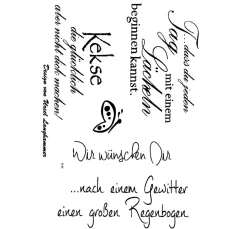 ...dass du jeden
Tag
mit einem
Lächeln
beginnen kannst.
Kekse
die glücklich
aber nicht dick machen!
Design von Ursel Langhammer
Wir wünschen Dir
...nach einem Gewitter
einen großen Regenbogen